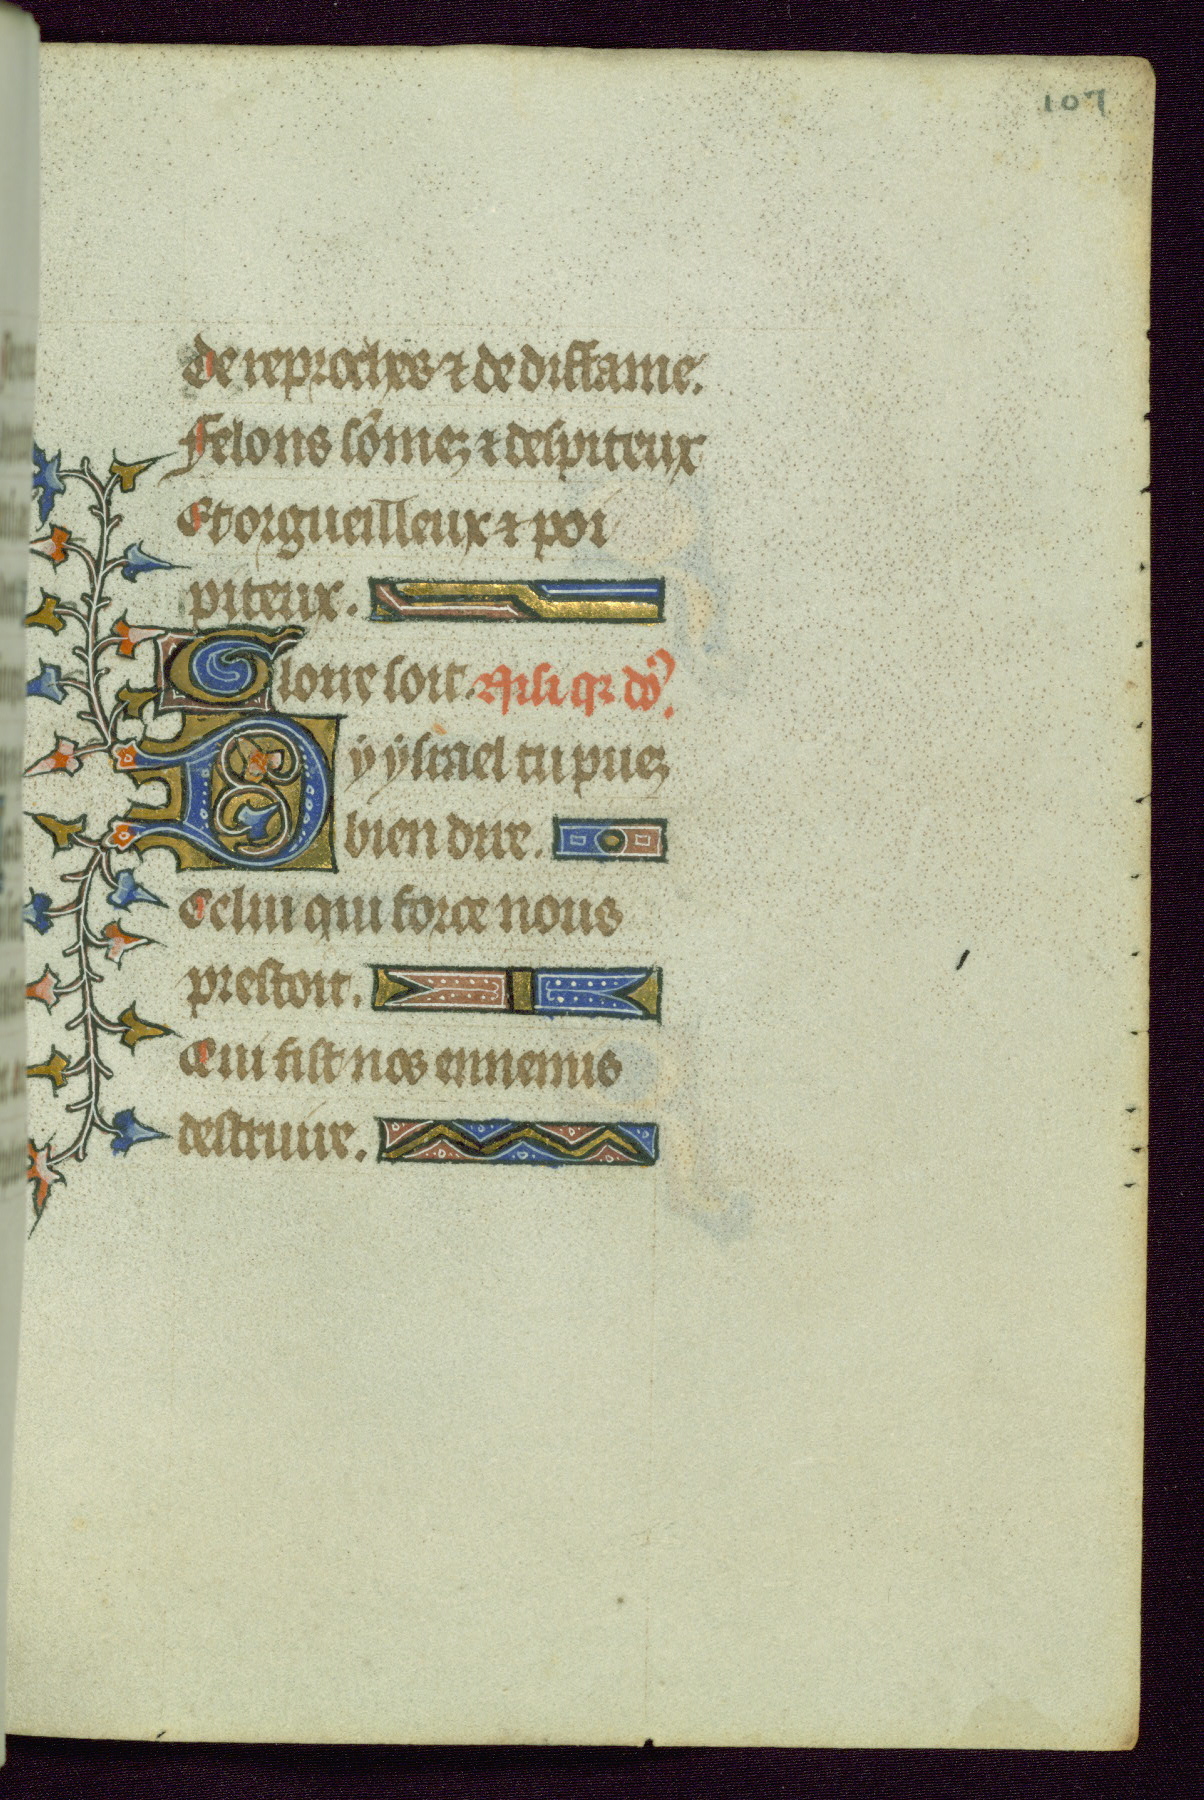 107
De reproches ⁊ de diffame.
Felons sõmez ⁊ despiteux
Et orgueilleux ⁊ poi
piteux.
Gloire soit. Nisi qr dñs.
Dy ysrael tu puez
bien dire.
Celui qui force nous
prestoit.
Qui fist nos ennemis
destruire.